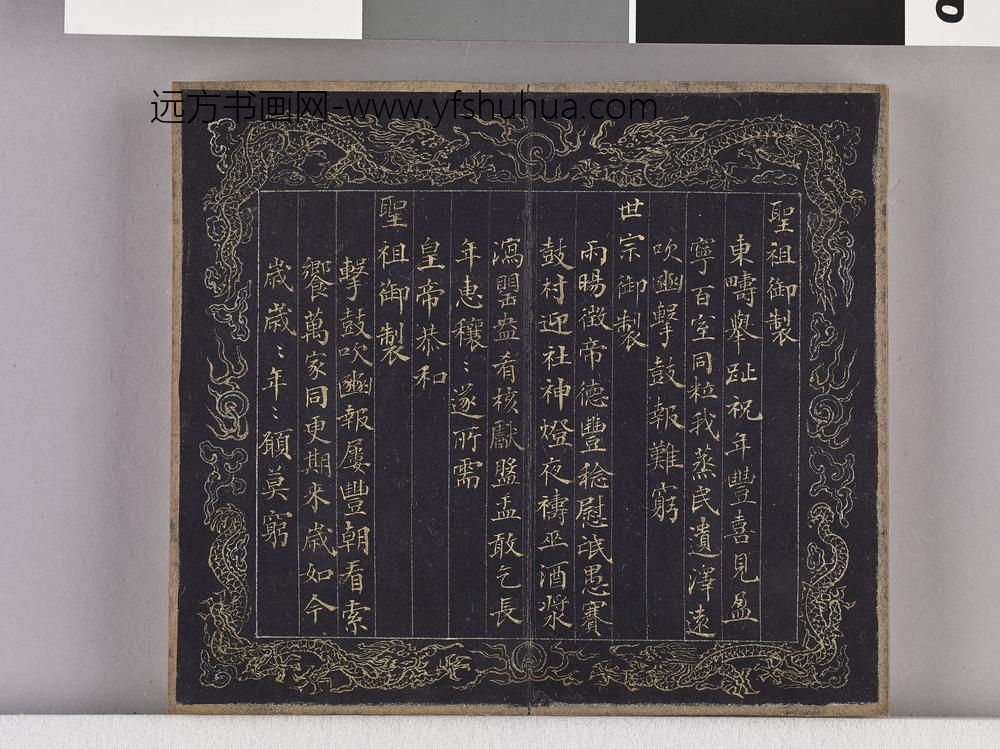 远方书画网-www.yfshuhua.com
聖祖御製
東疇舉趾祝年豐喜見盈
寧百室同粒我蒸民遺澤遠
吹豳擊鼓報難窮
世宗御製
雨暘徵帝德豐稔慰甿愚賽
鼓村迎社神燈夜禱巫酒漿
瀉罌盎肴核獻盤盂敢乞長
年惠穰〻遂所需
皇帝恭和
聖祖御製
擊鼓吹豳報屢豐朝看索
饗萬家同更期來歲如今
歲歲〻年〻願莫窮